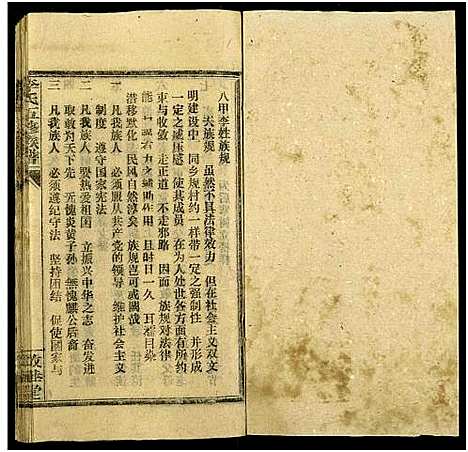 八甲李姓族规
夫族规 虽然不具法律效力 但在社会主义双文
明建设中 同乡规村约一样带一定之强制性 并形成
一定之威压感 使其成员 在为人处世各方面有所约
束与收敛 走正道 不走邪路 因而 族规对法律
能 之辅助作用 且时日一久 耳濡目染
潜移默化 民风自然淳矣 族规岂可或阙哉
一 凡我族人 必须服从共产党的领导 维护社会主义
制度 遵守国家宪法
二 凡我族人 要热爱祖国 立振兴中华之志 奋发进
取敢为天下先 无愧炎黄子孙 无愧麒公后裔
三 凡我族人 必须遵纪守法 坚持团结 促使国家与
李氏五修族谱